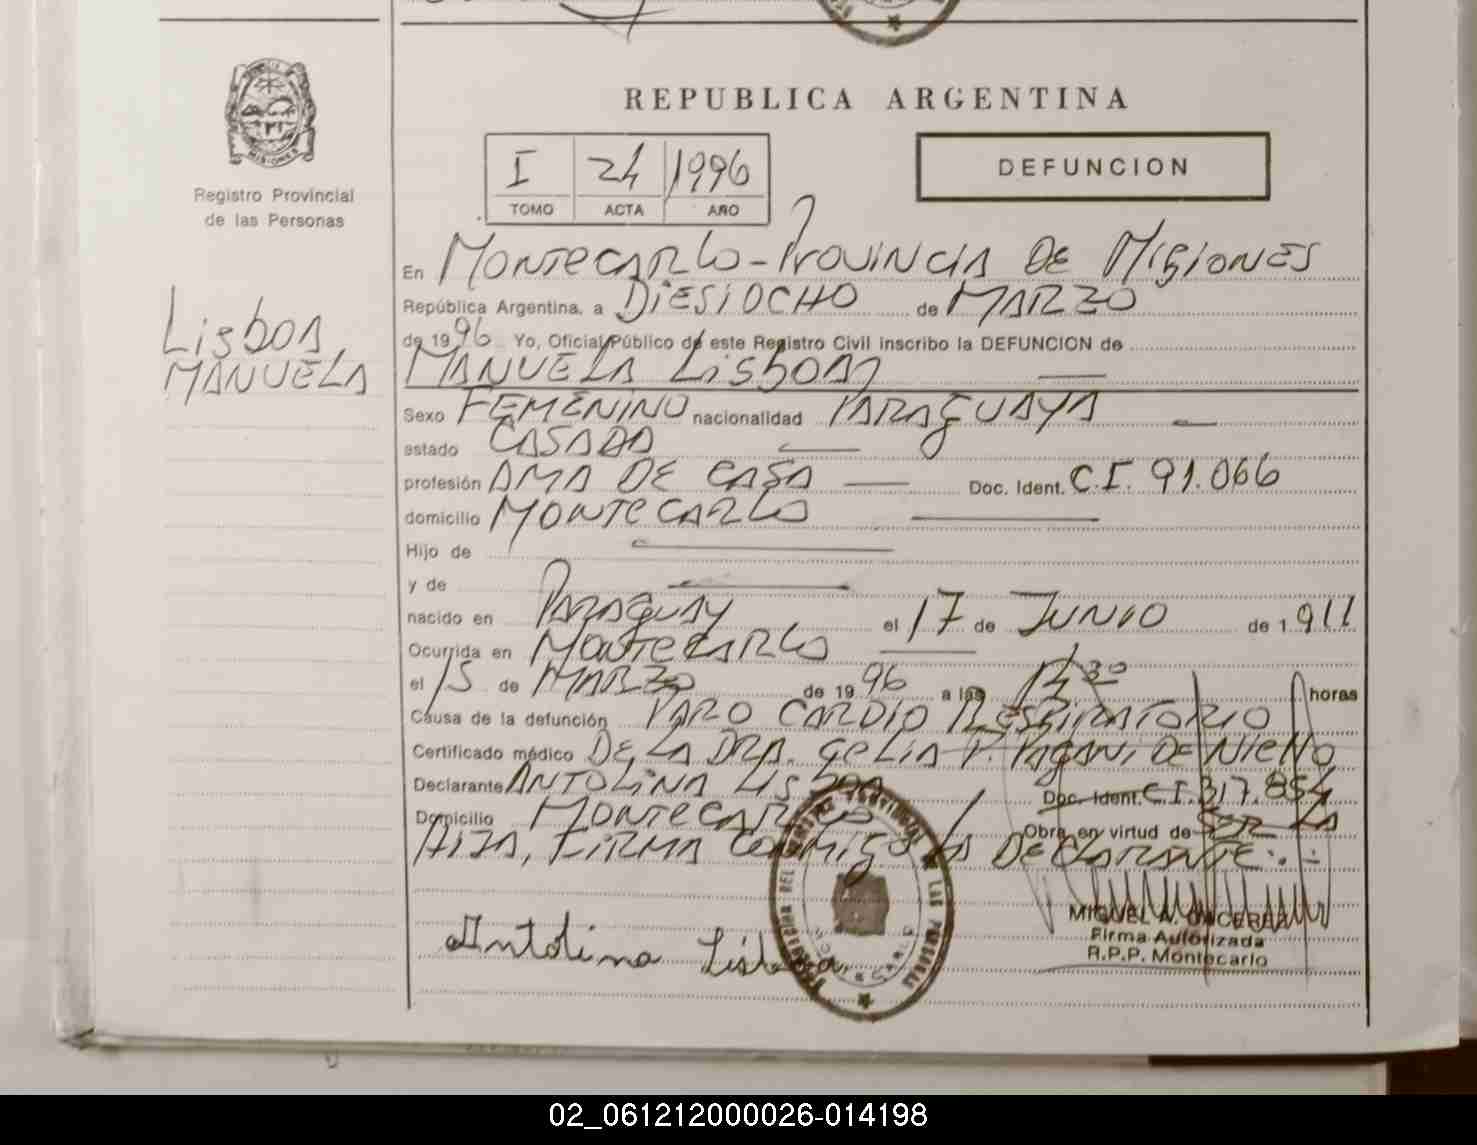 REPUBLICA ARGENTINA
MISIONES
Registro Provincial
de las Personas
I 24 1996
TOMO ACTA AÑO
DEFUNCION
Lisboa
MANUELA
En MONTECARLO - PROVINCIA DE MISIONES
República Argentina, a DIESIOCHO de MARZO
de 1996 Yo, Oficial Público de este Registro Civil inscribo la DEFUNCION de
MANUELA LISBOA
Sexo FEMENINO nacionalidad PARAGUAYA
estado CASADA
profesión AMA DE CASA Doc. Ident. C.I. 91.066
domicilio MONTECARLO
Hijo de
y de
nacido en PARAGUAY el 17 de JUNIO de 1911
Ocurrida en MONTECARLO
el 15 de MARZO de 1996 a las 14 30 horas
Causa de la defunción PARO CARDIO RESPIRATORIO
Certificado médico DE LA DRA. CELIA P. PAGANI DE
Declarante ANTOLINA LISBOA Doc. Ident. C.I. 317.854
Domicilio MONTECARLO Obra en virtud de SER LA
HIJA, FIRMA CONMIGO LA DECLARANTE
Antolina Lisboa
MIGUEL A.
Firma Autorizada
R.P.P. Montecarlo
02_061212000026-014198